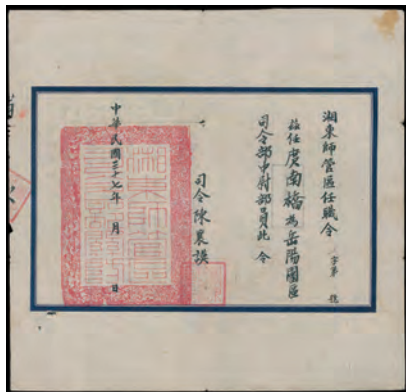 湘東師管區任職令 字第 號
茲任虞南楷為岳陽團區
司令部中尉部員此令
司令陳襄謨
中華民國三十七年 月 日